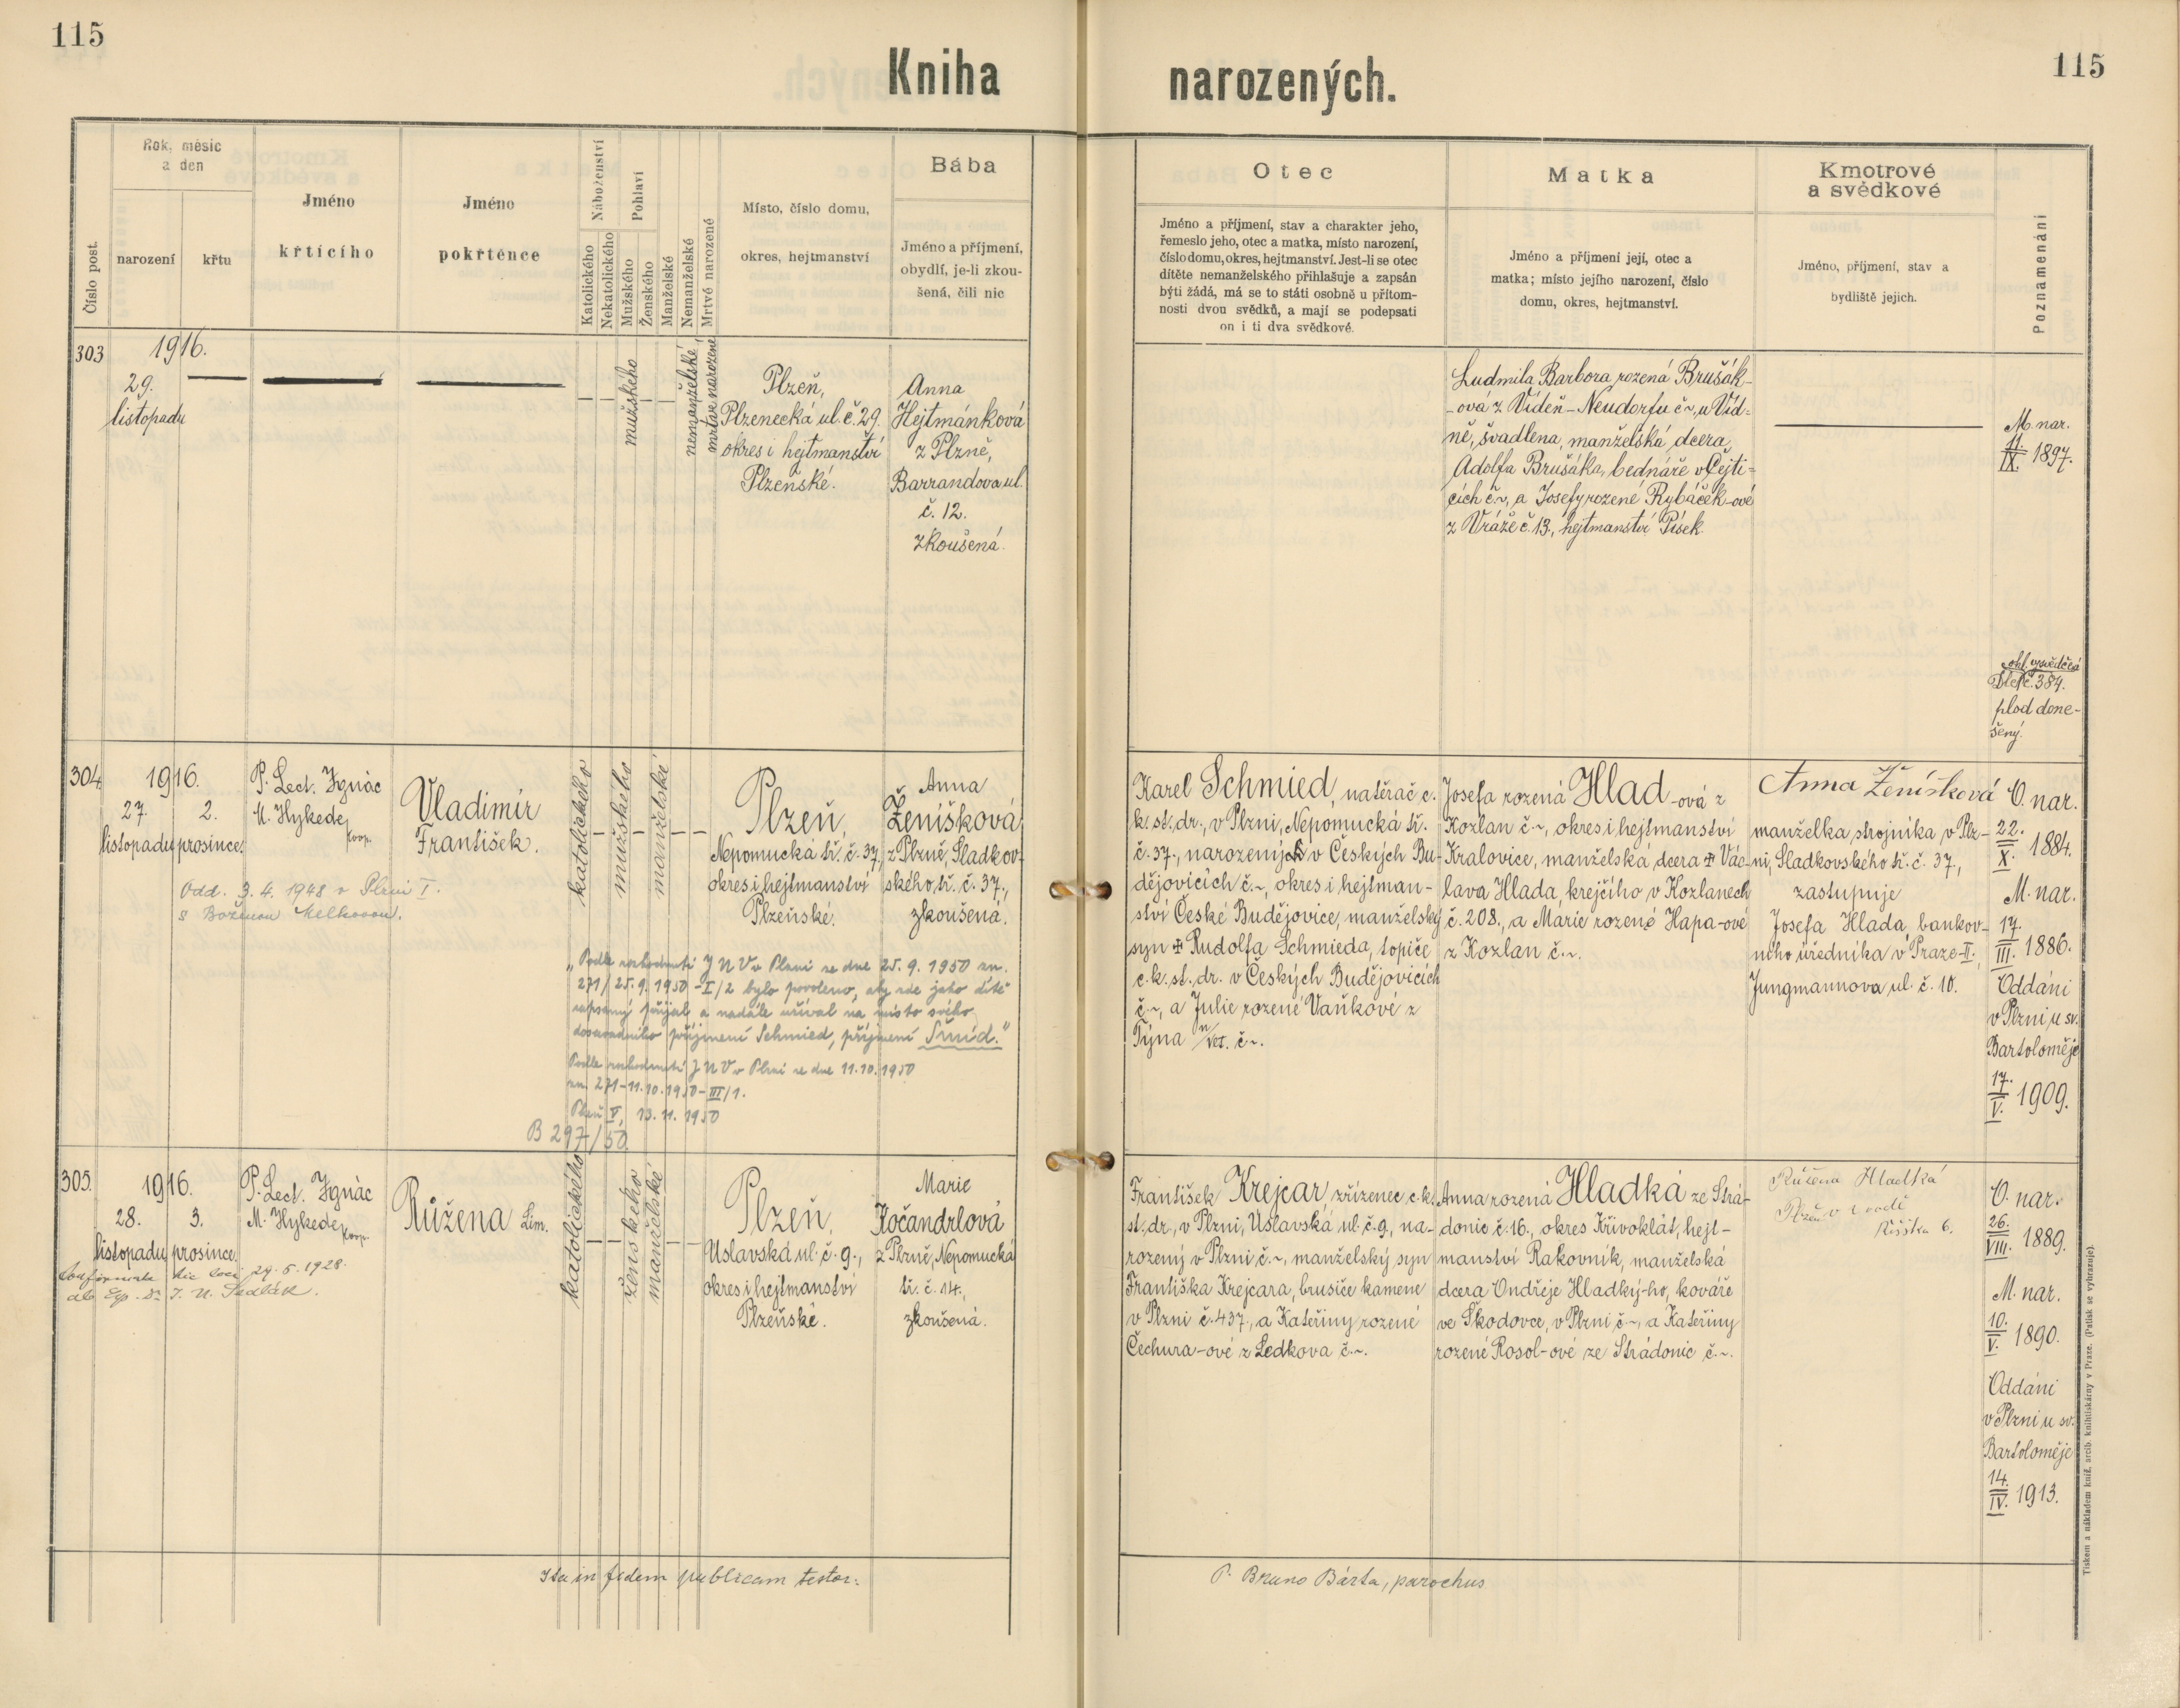 115
115
Kniha narozených.
Číslo post.
Rok, měsíc
a den
narození
křtu
Jméno
křticího
Jméno
pokřtěnce
Náboženství
Katolického
Nekatolického
Pohlaví
Mužského
Ženského
Manželské
Nemanželské
Mrtvě narozené
Místo, číslo domu,
okres, hejtmanství
Bába
Jméno a příjmení,
obydlí, je-li zkou-
šená, čili nic
Otec
Jméno a příjmení, stav a charakter jeho,
řemeslo jeho, otec a matka, místo narození,
číslo domu, okres, hejtmanství. Jest-li se otec
dítěte nemanželského přihlašuje a zapsán
býti žádá, má se to státi osobně u přítom-
nosti dvou svědků, a mají se podepsati
on i ti dva svědkové.
Matka
Jméno a příjmení její, otec a
matka; místo jejího narození, číslo
domu, okres, hejtmanství.
Kmotrové
a svědkové
Jméno, příjmení, stav a
bydliště jejich.
Poznamenání
303
1916.
29.
listopadu
mužského
nemanželské
mrtvě narozené
Plzeň,
Plzenecká ul. č. 29.
okres i hejtmanství
Plzeňské.
Anna
Hejtmánková
z Plzně,
Barrandova ul.
č. 12.
zkoušená.
Ludmila Barbora rozená Brušák-
-ová z Vídeň-Neudorfu č ~, u Víd-
ně, švadlena, manželská dcera
Adolfa Brušáka, bednáře v Čejti-
cích č. ~, a Josefy rozené Rybáček-ové
z Vráže č. 13., hejtmanství Písek.
M. nar.
11.
IX. 1897.
ohl. vysvědčení
č. 384.
plod done-
šený.
304
1916.
27. 2.
listopadu prosince.
P. Lect. Ignác
M. Hykede
koop.
Vladimír
František.
katolického
mužského
manželské
Plzeň,
Nepomucká tř. č. 37,
okres i hejtmanství
Plzeňské.
Anna
Ženíšková
z Plzně, Sladkov-
ského tř. č. 37.,
zkoušená.
Karel Schmied, natěrač c.
k. st. dr., v Plzni, Nepomucká tř.
č. 37., narozený v Českých Bu-
dějovicích č. ~, okres i hejtman-
ství České Budějovice, manželský
syn ✠ Rudolfa Schmieda, topiče
c. k. st. dr. v Českých Budějovicích
č. ~, a Julie rozené Vaňkové z
Týna n/Vlt. č ~.
Josefa rozená Hlad-ová z
Kozlan č. ~, okres i hejtmanství
Kralovice, manželská dcera ✠ Vác-
lava Hlada, krejčího v Kozlanech
č. 208., a Marie rozené Hapa-ové
z Kozlan č. ~.
Anna Ženíšková
manželka strojníka v Plz-
ni, Sladkovského tř. č. 37.,
zastupuje
Josefa Hlada, bankov-
ního úředníka v Praze-II.,
Jungmannova ul. č. 10.
O. nar.
22.
X. 1884.
M. nar.
17.
III. 1886.
Oddáni
v Plzni u sv.
Bartoloměje
17.
V. 1909.
Odd. 3. 4. 1948 v Plzni I.
s Boženou Melkovou.
„Podle rozhodnutí JNV v Plzni ze dne 25. 9. 1950 zn.
271/25.9.1950-I/2 bylo povoleno, aby zde jako dítě
zapsaný přijal a nadále užíval na místo svého
dosavadního příjmení Schmied, příjmení Šmíd."
Podle rozhodnutí JNV v Plzni ze dne 11.10.1950
zn. 271-11.10.1950-III/1.
Plzeň V, 13. 11. 1950
B 297/50
305.
1916.
28. 3.
listopadu prosince.
P. Lect. Ignác
M. Hykede
koop.
Růžena Lim.
katolického
ženského
manželské
Plzeň,
Úslavská ul. č. 9.,
okres i hejtmanství
Plzeňské.
Marie
Kočandrlová
z Plzně, Nepomucká
tř. č. 14.,
zkoušená.
František Krejcar, zřízenec c. k.
st. dr., v Plzni, Úslavská ul. č. 9, na-
rozený v Plzni č. ~, manželský syn
Františka Krejcara, brusiče kamene
v Plzni č. 437., a Kateřiny rozené
Čechura-ové z Ledkova č. ~.
Anna rozená Hladká ze Strá-
donic č. 16., okres Křivoklát, hejt-
manství Rakovník, manželská
dcera Ondřeje Hladký-ho, kováře
ve Škodovce, v Plzni č ~, a Kateřiny
rozené Rosol-ové ze Strádonic č. ~.
Růžena Hladká
6.
O. nar.
26.
VIII. 1889.
M. nar.
10.
V. 1890.
Oddáni
v Plzni u sv.
Bartoloměje
14.
IV. 1913.
hic loci 29. 5. 1928.
Ita in fidem publicam testor:
P. Bruno Bárta, parochus
Tiskem a nákladem kníž. arcib. knihtiskárny v Praze. (Patisk se vyhrazuje).